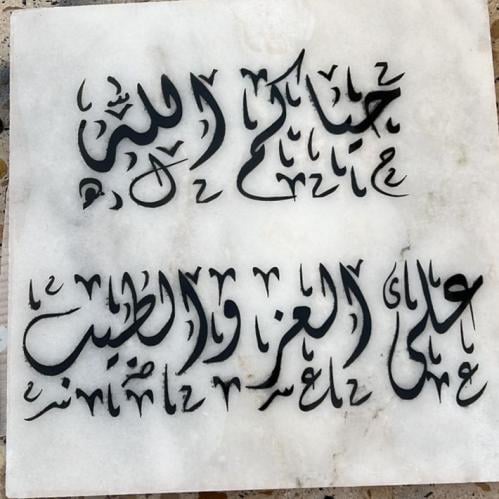 حياكم الله
على العز والطيب